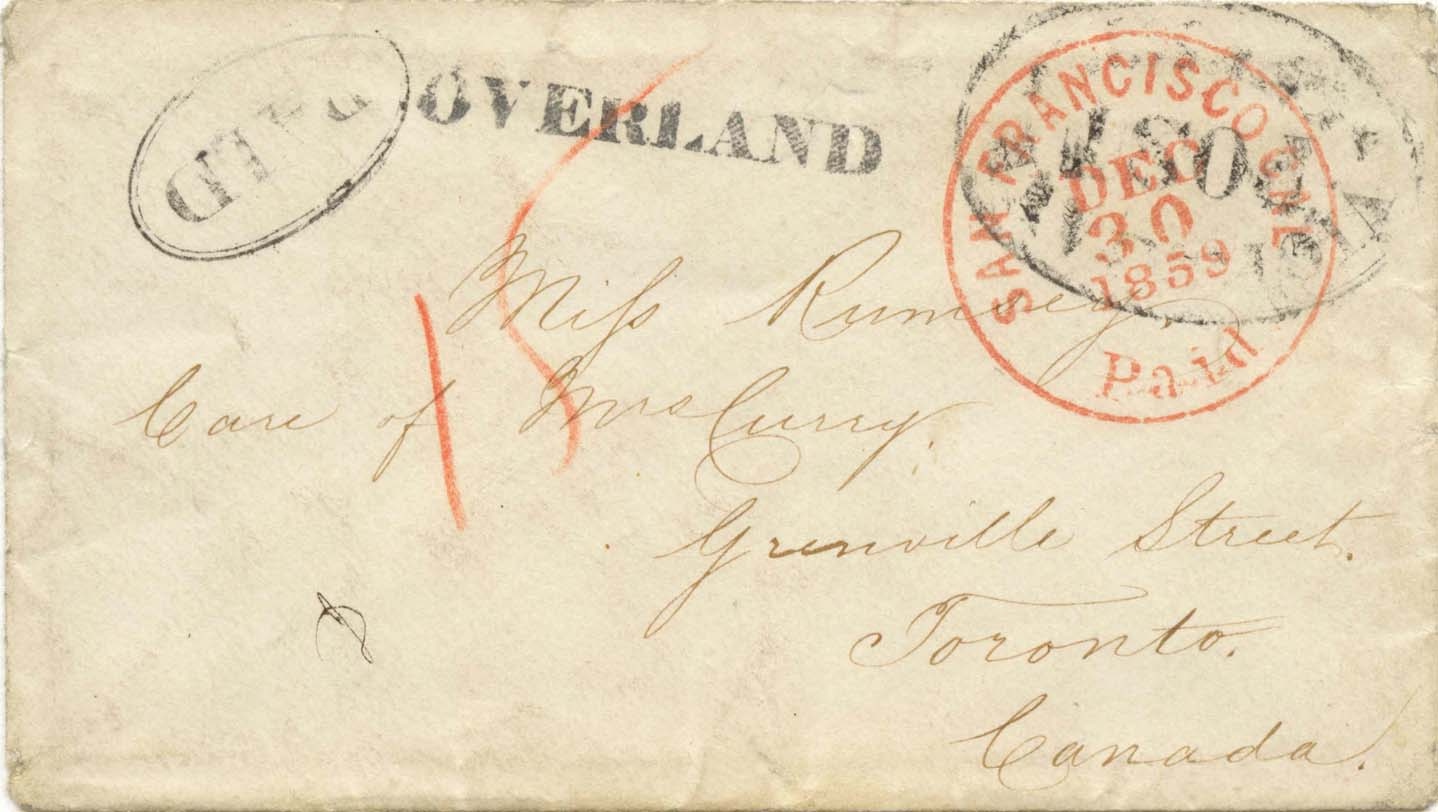 PAID
OVERLAND
SAN FRANCISCO CAL.
DEC
30
1859
Paid
15
Miss Rumsey,
Care of Mrs Curry.
Grenville Street.
Toronto.
Canada.